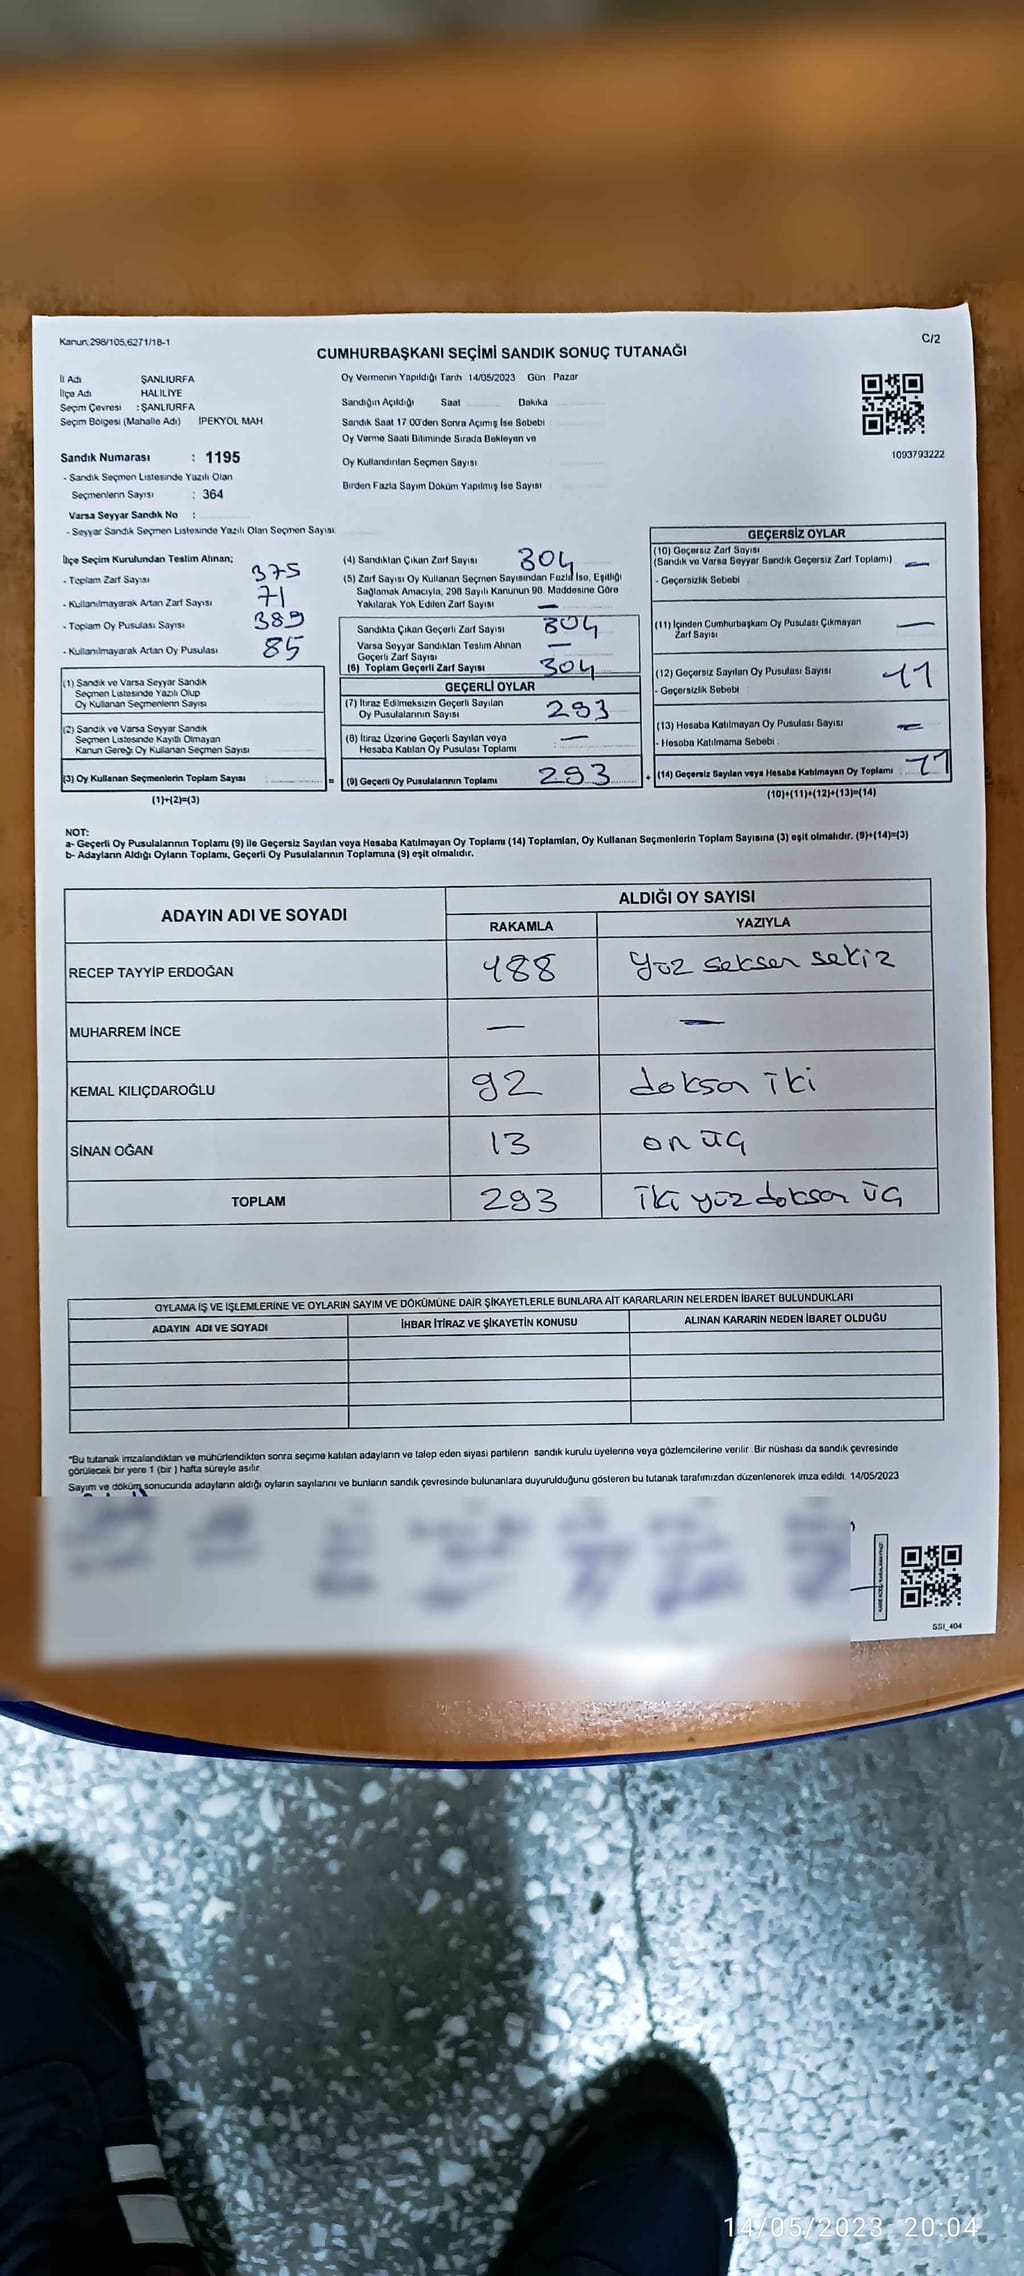 Kanun,298/105,6271/18-1
C/2
CUMHURBAŞKANI SEÇİMİ SANDIK SONUÇ TUTANAĞI
İl Adı ŞANLIURFA
İlçe Adı HALİLİYE
Seçim Çevresi : ŞANLIURFA
Seçim Bölgesi (Mahalle Adı) İPEKYOL MAH
Sandık Numarası : 1195
- Sandık Seçmen Listesinde Yazılı Olan
Seçmenlerin Sayısı : 364
Varsa Seyyar Sandık No :
- Seyyar Sandık Seçmen Listesinde Yazılı Olan Seçmen Sayısı
Oy Vermenin Yapıldığı Tarih 14/05/2023 Gün : Pazar
Sandığın Açıldığı Saat Dakika
Sandık Saat 17:00'den Sonra Açımış İse Sebebi
Oy Verme Saati Bitiminde Sırada Bekleyen ve
Oy Kullandırılan Seçmen Sayısı
Birden Fazla Sayım Döküm Yapılmış İse Sayısı
1093793222
İlçe Seçim Kurulundan Teslim Alınan;
- Toplam Zarf Sayısı 375
- Kullanılmayarak Artan Zarf Sayısı 71
- Toplam Oy Pusulası Sayısı 389
- Kullanılmayarak Artan Oy Pusulası 85
(1) Sandık ve Varsa Seyyar Sandık
Seçmen Listesinde Yazılı Olup
Oy Kullanan Seçmenlerin Sayısı
(2) Sandık ve Varsa Seyyar Sandık
Seçmen Listesinde Kayıtlı Olmayan
Kanun Gereği Oy Kullanan Seçmen Sayısı
(3) Oy Kullanan Seçmenlerin Toplam Sayısı : =
(1)+(2)=(3)
(4) Sandıktan Çıkan Zarf Sayısı 304
(5) Zarf Sayısı Oy Kullanan Seçmen Sayısından Fazla İse, Eşitliği
Sağlamak Amacıyla, 298 Sayılı Kanunun 98. Maddesine Göre
Yakılarak Yok Edilen Zarf Sayısı —
Sandıkta Çıkan Geçerli Zarf Sayısı 304
Varsa Seyyar Sandıktan Teslim Alınan —
Geçerli Zarf Sayısı
(6) Toplam Geçerli Zarf Sayısı 304
GEÇERLİ OYLAR
(7) İtiraz Edilmeksizin Geçerli Sayılan
Oy Pusulalarının Sayısı 293
(8) İtiraz Üzerine Geçerli Sayılan veya —
Hesaba Katılan Oy Pusulası Toplamı
(9) Geçerli Oy Pusulalarının Toplamı 293 +
GEÇERSİZ OYLAR
(10) Geçersiz Zarf Sayısı
(Sandık ve Varsa Seyyar Sandık Geçersiz Zarf Toplamı) —
- Geçersizlik Sebebi :
(11) İçinden Cumhurbaşkanı Oy Pusulası Çıkmayan —
Zarf Sayısı
(12) Geçersiz Sayılan Oy Pusulası Sayısı 11
- Geçersizlik Sebebi
(13) Hesaba Katılmayan Oy Pusulası Sayısı —
- Hesaba Katılmama Sebebi
(14) Geçersiz Sayılan veya Hesaba Katılmayan Oy Toplamı 11
(10)+(11)+(12)+(13)=(14)
NOT:
a- Geçerli Oy Pusulalarının Toplamı (9) ile Geçersiz Sayılan veya Hesaba Katılmayan Oy Toplamı (14) Toplamları, Oy Kullanan Seçmenlerin Toplam Sayısına (3) eşit olmalıdır. (9)+(14)=(3)
b- Adayların Aldığı Oyların Toplamı, Geçerli Oy Pusulalarının Toplamına (9) eşit olmalıdır.
ADAYIN ADI VE SOYADI ALDIĞI OY SAYISI
RAKAMLA YAZIYLA
RECEP TAYYİP ERDOĞAN 188 yüz seksen sekiz
MUHARREM İNCE — —
KEMAL KILIÇDAROĞLU 92 doksan iki
SİNAN OĞAN 13 on üç
TOPLAM 293 iki yüz doksan üç
OYLAMA İŞ VE İŞLEMLERİNE VE OYLARIN SAYIM VE DÖKÜMÜNE DAİR ŞİKAYETLERLE BUNLARA AİT KARARLARIN NELERDEN İBARET BULUNDUKLARI
ADAYIN ADI VE SOYADI İHBAR İTİRAZ VE ŞİKAYETİN KONUSU ALINAN KARARIN NEDEN İBARET OLDUĞU
"Bu tutanak imzalandıktan ve mühürlendikten sonra seçime katılan adayların ve talep eden siyasi partilerin sandık kurulu üyelerine veya gözlemcilerine verilir. Bir nüshası da sandık çevresinde
görülecek bir yere 1 (bir ) hafta süreyle asılır.
Sayım ve döküm sonucunda adayların aldığı oyların sayılarını ve bunların sandık çevresinde bulunanlara duyurulduğunu gösteren bu tutanak tarafımızdan düzenlenerek imza edildi. 14/05/2023
SSI_404
14/05/2023 20:04